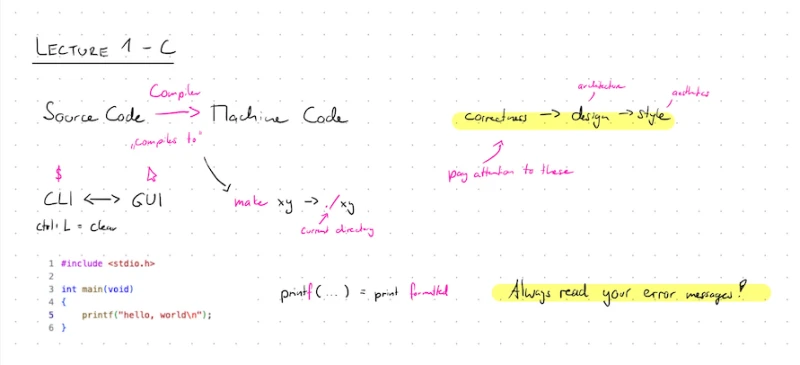 LECTURE 1 - C
Compiler
Source Code → Machine Code
„compiles to"
architecture
aesthetics
correctness → design → style
pay attention to these
$
CLI ↔ GUI
ctrl + L = clear
make xy → ./xy
current directory
1 #include <stdio.h>
2
3 int main(void)
4 {
5 printf("hello, world\n");
6 }
printf(...) = print formatted
Always read your error messages!